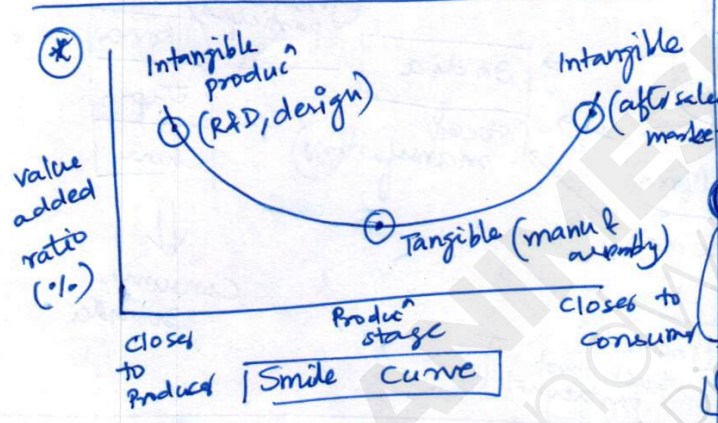 *
Intangible
producⁿ
(R&D, design)
Intangible
(aftr sale
marke
value
added
ratio
(%)
Tangible (manu &
assembly)
Closer
to
Producer
Producⁿ
stage
Closer to
Consumer
Smile Curve
ANIMESH